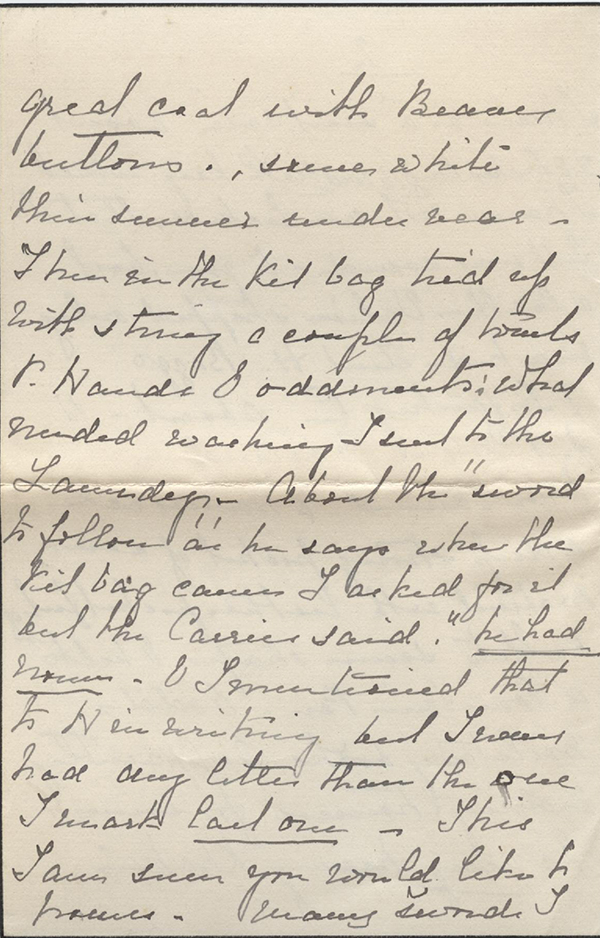 great coat with Beaver
buttons., some white
thin summer under wear -
Then in the Kit bag tied up
with string a couple of boots
& oddments: What
needed washing I sent to the
Laundry - About the "sword
to follow" as he says when the
Kit bag came I asked for it
but the Carrier said "he had
none - & I mentioned that
to H in writing but I never
had any letter than the one
I mark last one - This
I am sure you would like to
know - many swords I